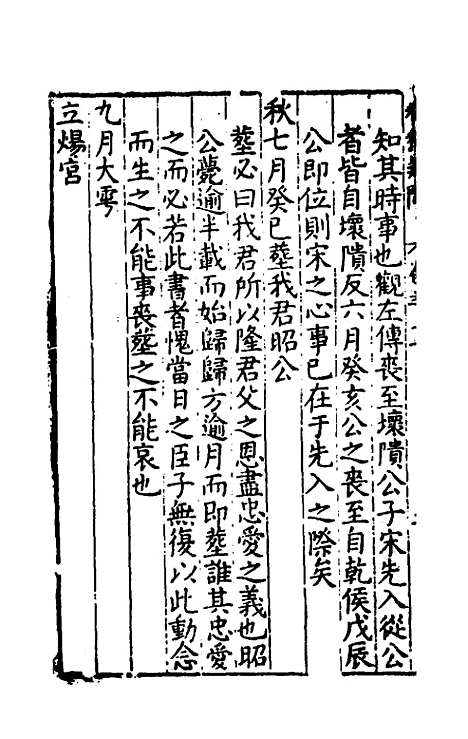 知其時事也觀左傳喪至壞隤公子宋先入從公
者皆自壞隤反六月癸亥公之喪至自乾侯戊辰
公即位則宋之心事已在于先入之際矣
秋七月癸巳塟我君昭公
塟必曰我君所以隆君父之恩盡忠愛之義也昭
公薨逾半載而始歸歸方逾月而即塟誰其忠愛
之而必若此書者愧當日之臣子無復以此動念
而生之不能事喪塟之不能哀也
九月大雩
立煬宮